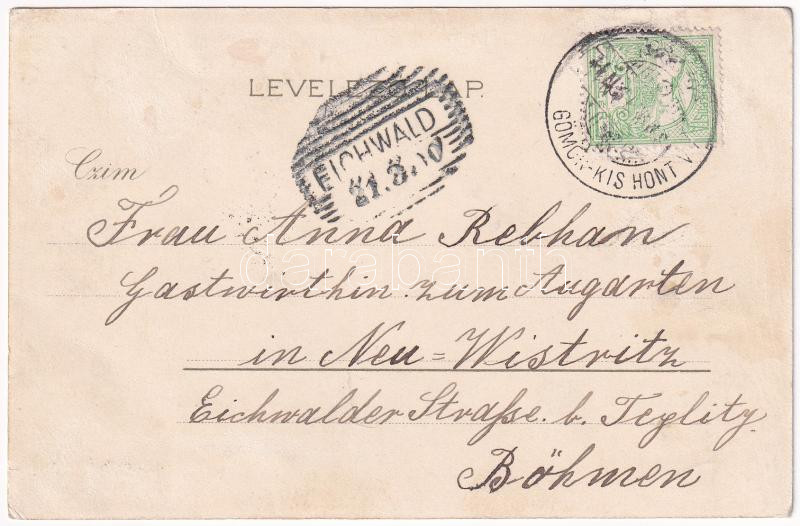 LEVELEZŐ-LAP.
EICHWALD
21.3.00
GÖMÖR-KIS HONT V
Czim
Frau Anna Rebhan
Gastwirthin zum Augarten
in Neu=Wistritz
Eichwalder Straße. b. Teplitz
Böhmen
darabanth